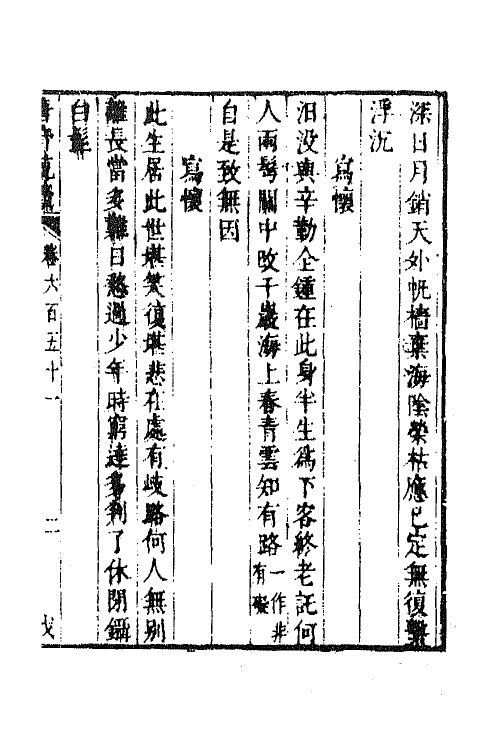 深日月銷天外帆檣棄海陰榮枯應已定無復繫
浮沉
寫懷
汨没與辛勤全鍾在此身半生爲下客終老託何
人兩鬢關中改千巖海上春青雲知有路一作非有礙
自是致無因
寫懷
此生居此世堪笑復堪悲在處有歧路何人無別
離長當多難日愁過少年時窮達都判了休閒鑷
白髭
卷六百五十一
二